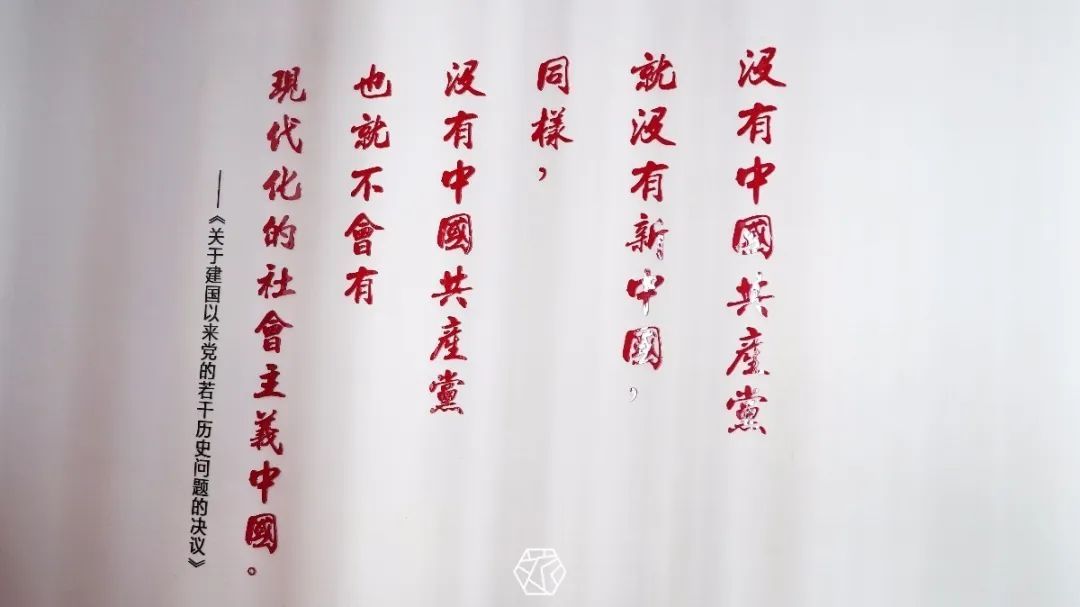 没有中國共產黨
就没有新中國，
同樣，
没有中國共產黨
也就不會有
現代化的社會主義中國。
——《关于建国以来党的若干历史问题的决议》